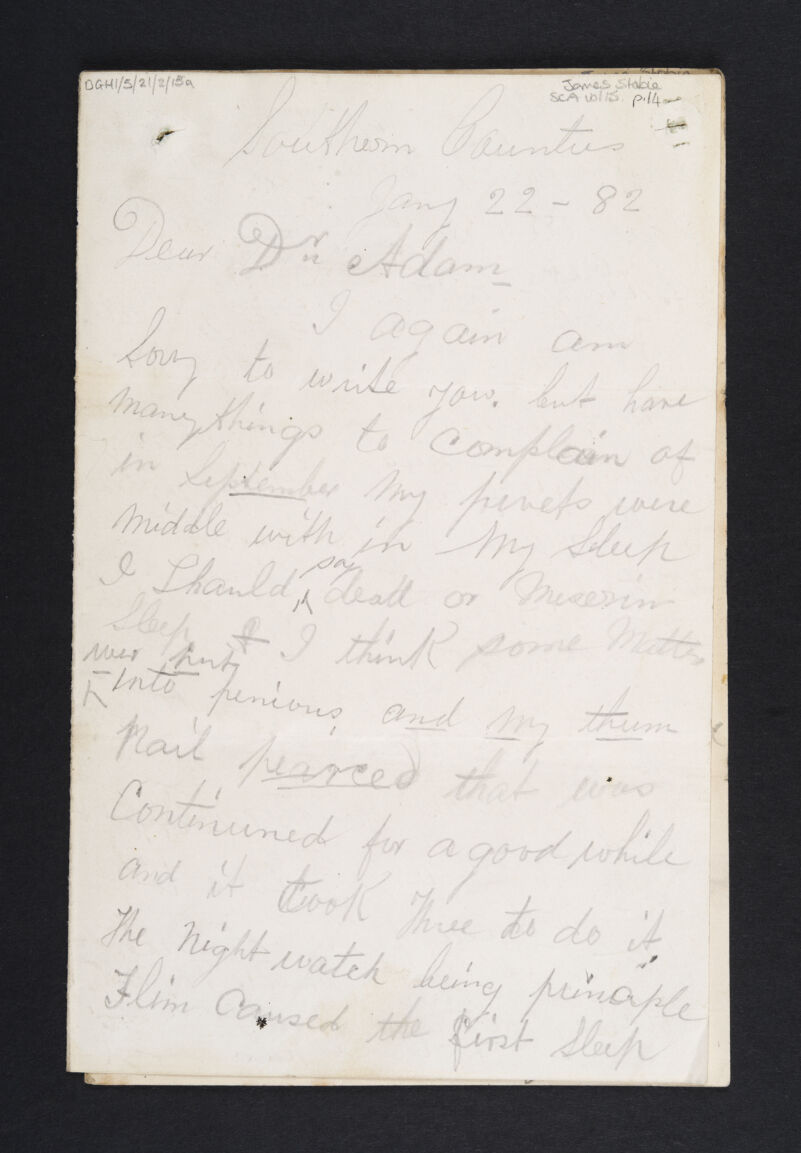 DGH1/5/21/2/13a
James Stobie
SCA 10/15. p.14
Southern Counties
Jany 22 - 82
Dear Dr Adam
I again am
Sorry to write you. but have
many things to complain of
in September My privets were
middle with in My Sleep
I Should say deall or Meserin
Sleep & I think some Matter
wer put
into penious and My thum
Nail pearced that was
Continuned for a good while
and it took three to do it
the Night watch being principle
Flim Caused the first Sleep